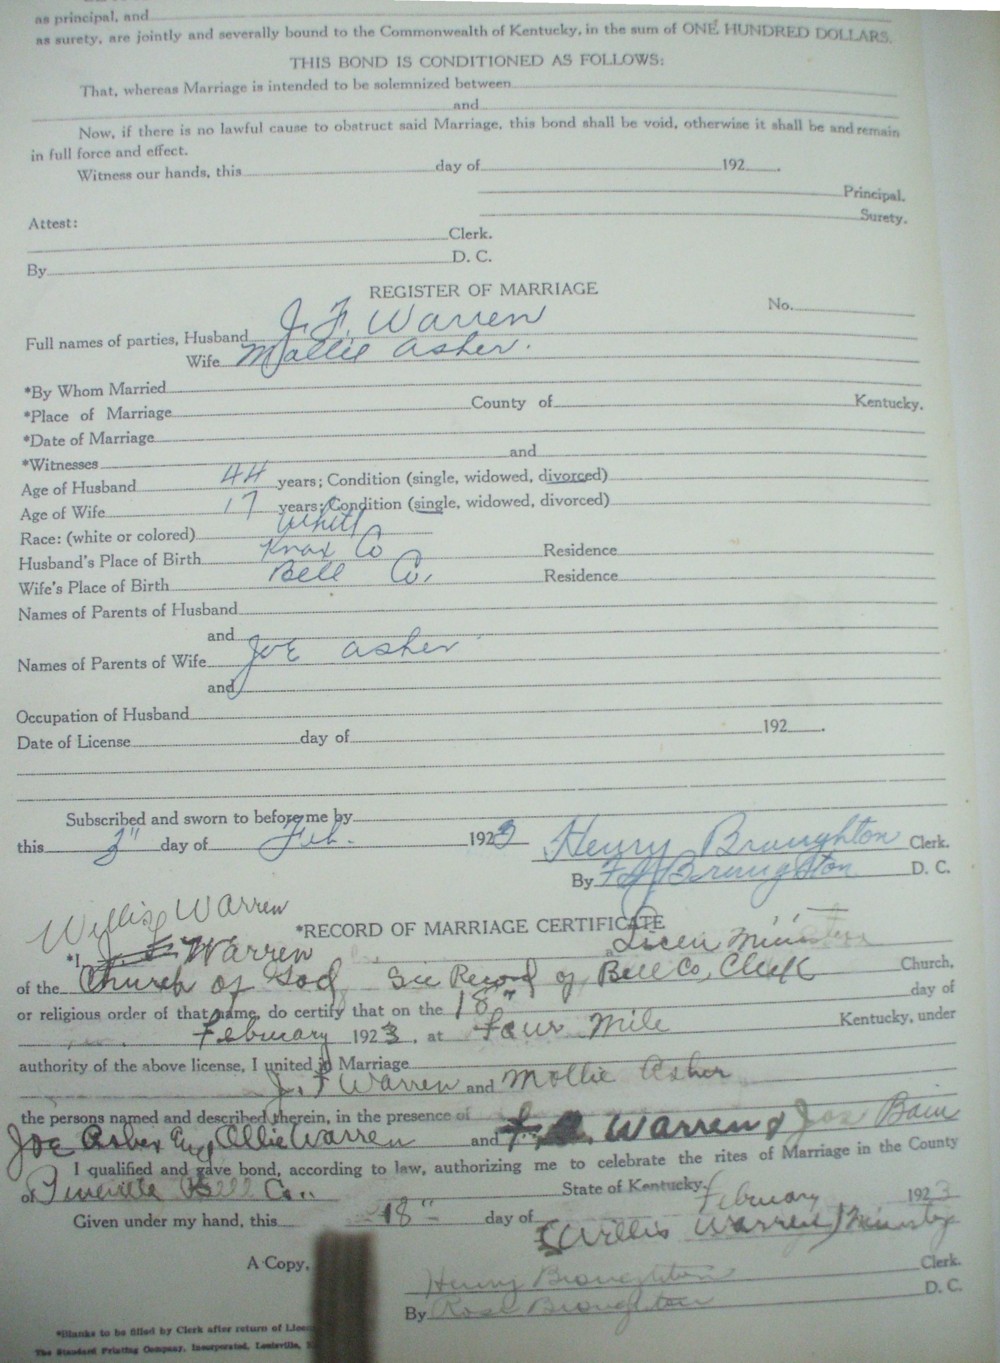 as principal, and
as surety, are jointly and severally bound to the Commonwealth of Kentucky, in the sum of ONE HUNDRED DOLLARS.
THIS BOND IS CONDITIONED AS FOLLOWS:
That, whereas Marriage is intended to be solemnized between
and
Now, if there is no lawful cause to obstruct said Marriage, this bond shall be void, otherwise it shall be and remain
in full force and effect.
Witness our hands, this day of 192 .
Principal.
Surety.
Attest:
Clerk.
By D. C.
REGISTER OF MARRIAGE
No.
Full names of parties, Husband J. F. Warren
Wife Mollie Asher.
*By Whom Married
*Place of Marriage County of Kentucky.
*Date of Marriage
*Witnesses and
Age of Husband 44 years; Condition (single, widowed, divorced)
Age of Wife 17 years; Condition (single, widowed, divorced)
Race: (white or colored) White
Husband's Place of Birth Knox Co Residence
Wife's Place of Birth Bell Co. Residence
Names of Parents of Husband
and
Names of Parents of Wife Joe Asher
and
Occupation of Husband
Date of License day of 192 .
Subscribed and sworn to before me by
this 3" day of Feb. 1923 Henry Broughton Clerk.
By Broughton D. C.
Willis Warren
*RECORD OF MARRIAGE CERTIFICATE
*I Warren Licen Minister
of the Church of God See Record of Bell Co, Clerk Church,
or religious order of that name, do certify that on the 18" day of
February 1923, at Four Mile Kentucky, under
authority of the above license, I united in Marriage
J. F Warren and Mollie Asher
the persons named and described therein, in the presence of
Joe Asher Ollie Warren and Warren & Jas Bain
I qualified and gave bond, according to law, authorizing me to celebrate the rites of Marriage in the County
of Pineville Bell Co.. State of Kentucky.
Given under my hand, this 18" day of February 1923
Willis Warren
A Copy.
Henry Broughton Clerk.
By Rose Broughton D. C.
*Blanks to be filled by Clerk after return of
The Standard Printing Company, Incorporated, Louisville,